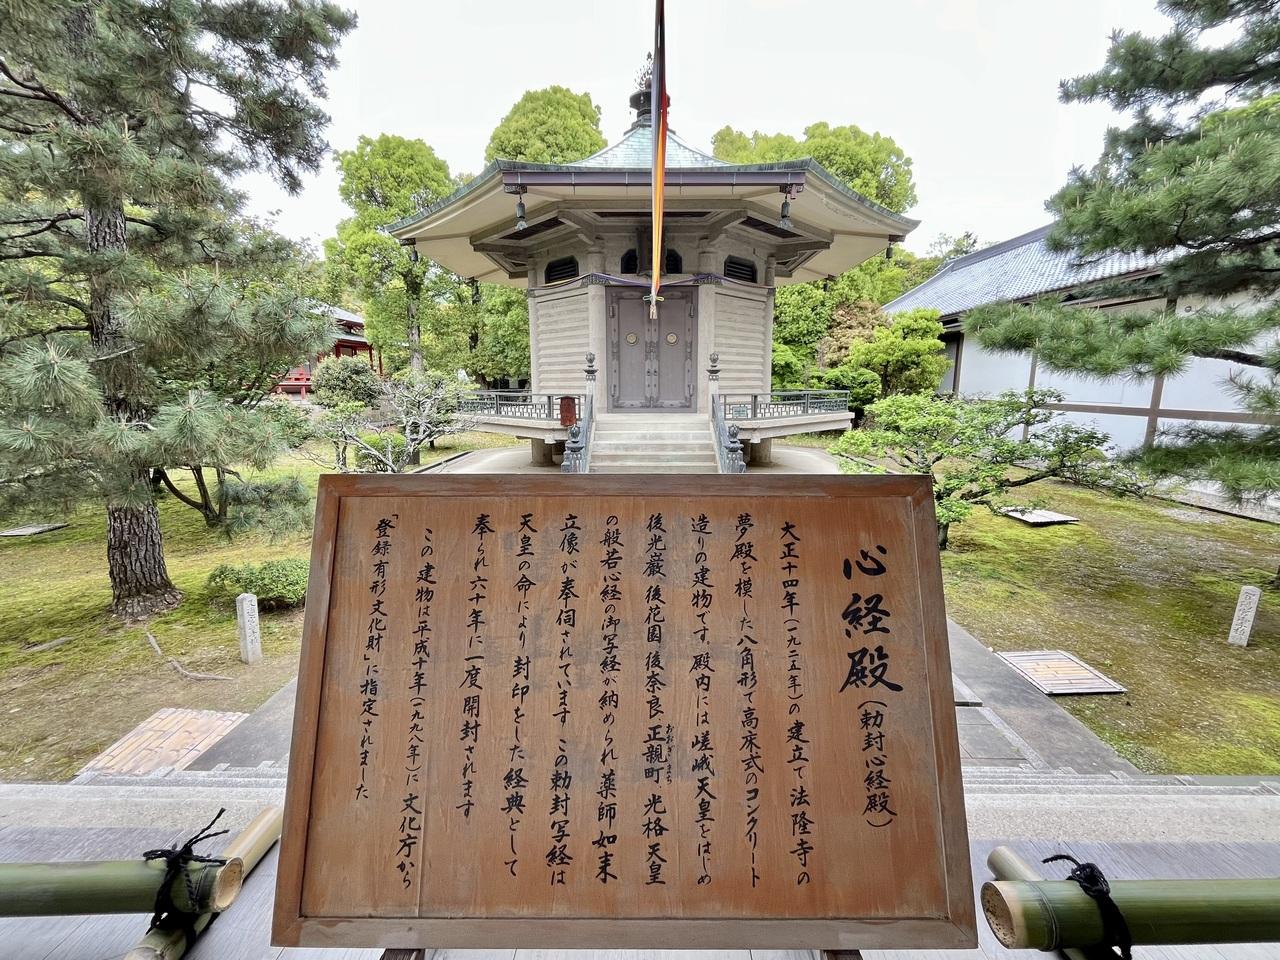 心経殿(勅封心経殿)
大正十四年(一九二五年)の建立で法隆寺の
夢殿を模した八角形で高床式のコンクリート
造りの建物です。殿内には嵯峨天皇をはじめ
後光厳後花園後奈良正親町光格天皇
おおぎまち
の般若心経の御写経が納められ薬師如来
立像が奉伺されています この勅封写経は
天皇の命により封印をした経典として
奉られ六十年に一度開封されます
この建物は平成十年(一九九八年)に文化庁から
「登録有形文化財」に指定されました